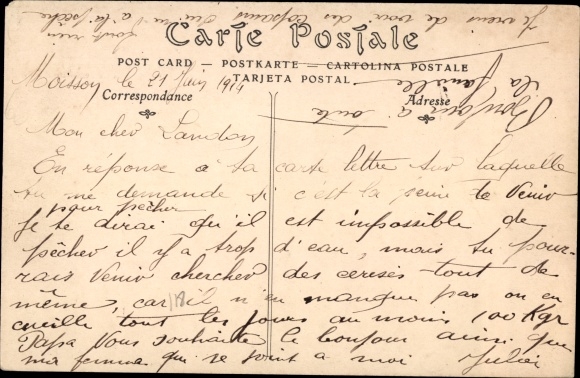 Carte Postale
POST CARD — POSTKARTE — CARTOLINA POSTALE
TARJETA POSTAL
Correspondance
Adresse
Moisson le 21 Juin 1914
Mon cher Landon
En réponse a ta carte lettre sur laquelle
tu me demande si c'est la peine de venir
pour pêcher
je te dirai qu'il est impossible de
pêcher il y a trop d'eau, mais tu pour-
rais venir chercher des cerises tout de
même, car il n'en manque pas on en
cueille tout les jours au moins 100 Kgr
Papa vous souhaite le bonjour ainsi que
ma femme qui se joint a moi Julien
Bonjour a toute
la famille
Je viens de voir des
qui m'a la pêche
rien